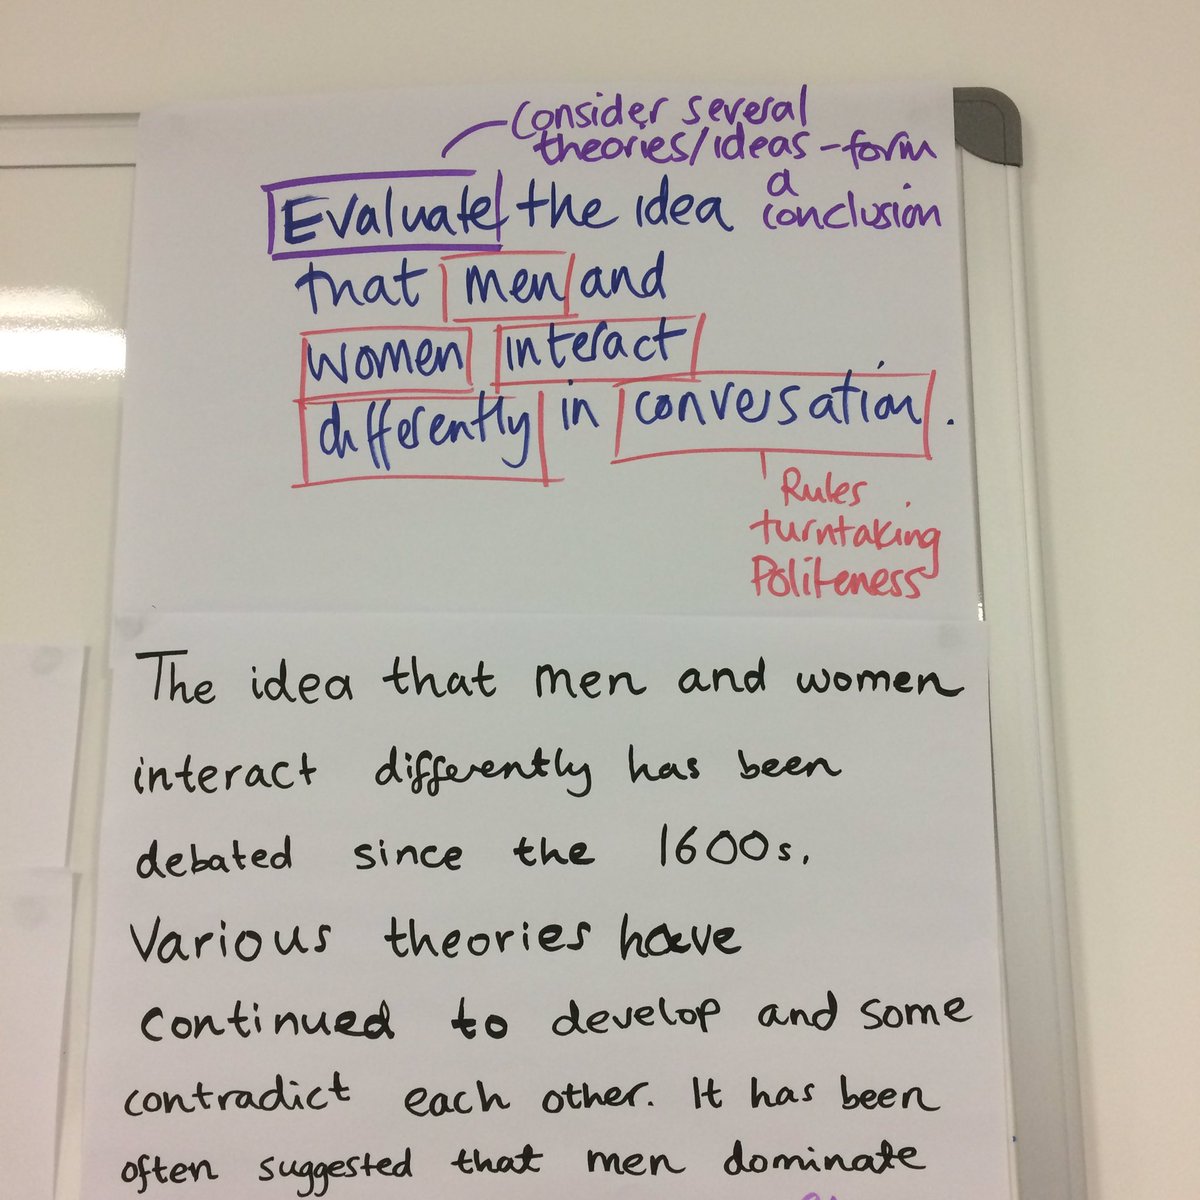 Consider several
theories/ideas - form
a
conclusion
Evaluate the idea
that men and
women interact
differently in conversation.
Rules
turntaking
Politeness
The idea that men and women
interact differently has been
debated since the 1600s.
Various theories have
continued to develop and some
contradict each other. It has been
often suggested that men dominate